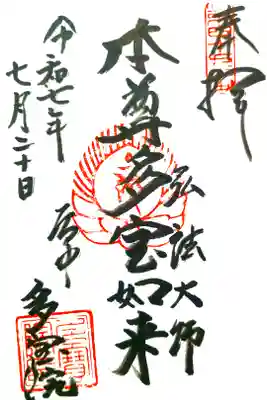 奉拝
弘法大師
本尊多宝如来
令和七年
七月二十日
谷中
多宝院